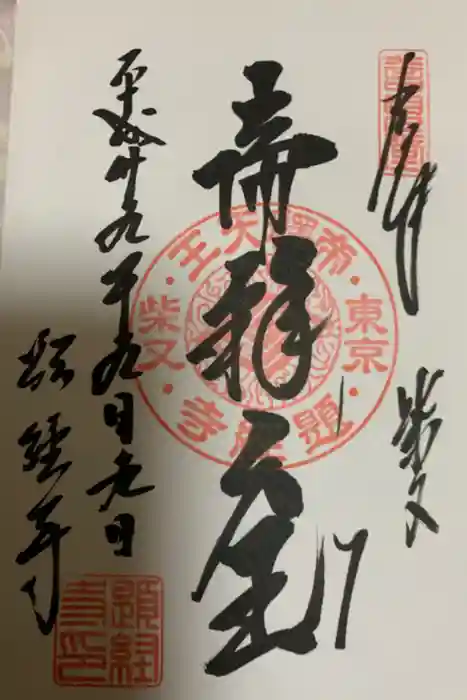 奉拝
柴又
帝釋天王
平成廿九年九月九日
題経寺
帝釋天王
東京
柴又
題経寺
題経寺印